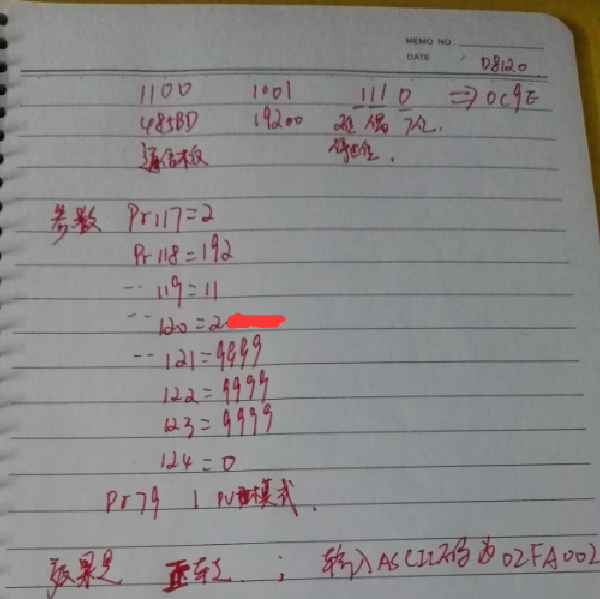 MEMO NO.
DATE D8120
1100 1001 1110 ⇒ 0C9E
485BD 19200 2位 偶 7位.
通信板 停止位.
参数 Pr117=2
Pr118=192
-- 119=11
-- 120=2
-- 121=9999
122=9999
123=9999
124=0
Pr79 1 PU模式.
效果是 正转 ; 输入ASCII码为02FA002